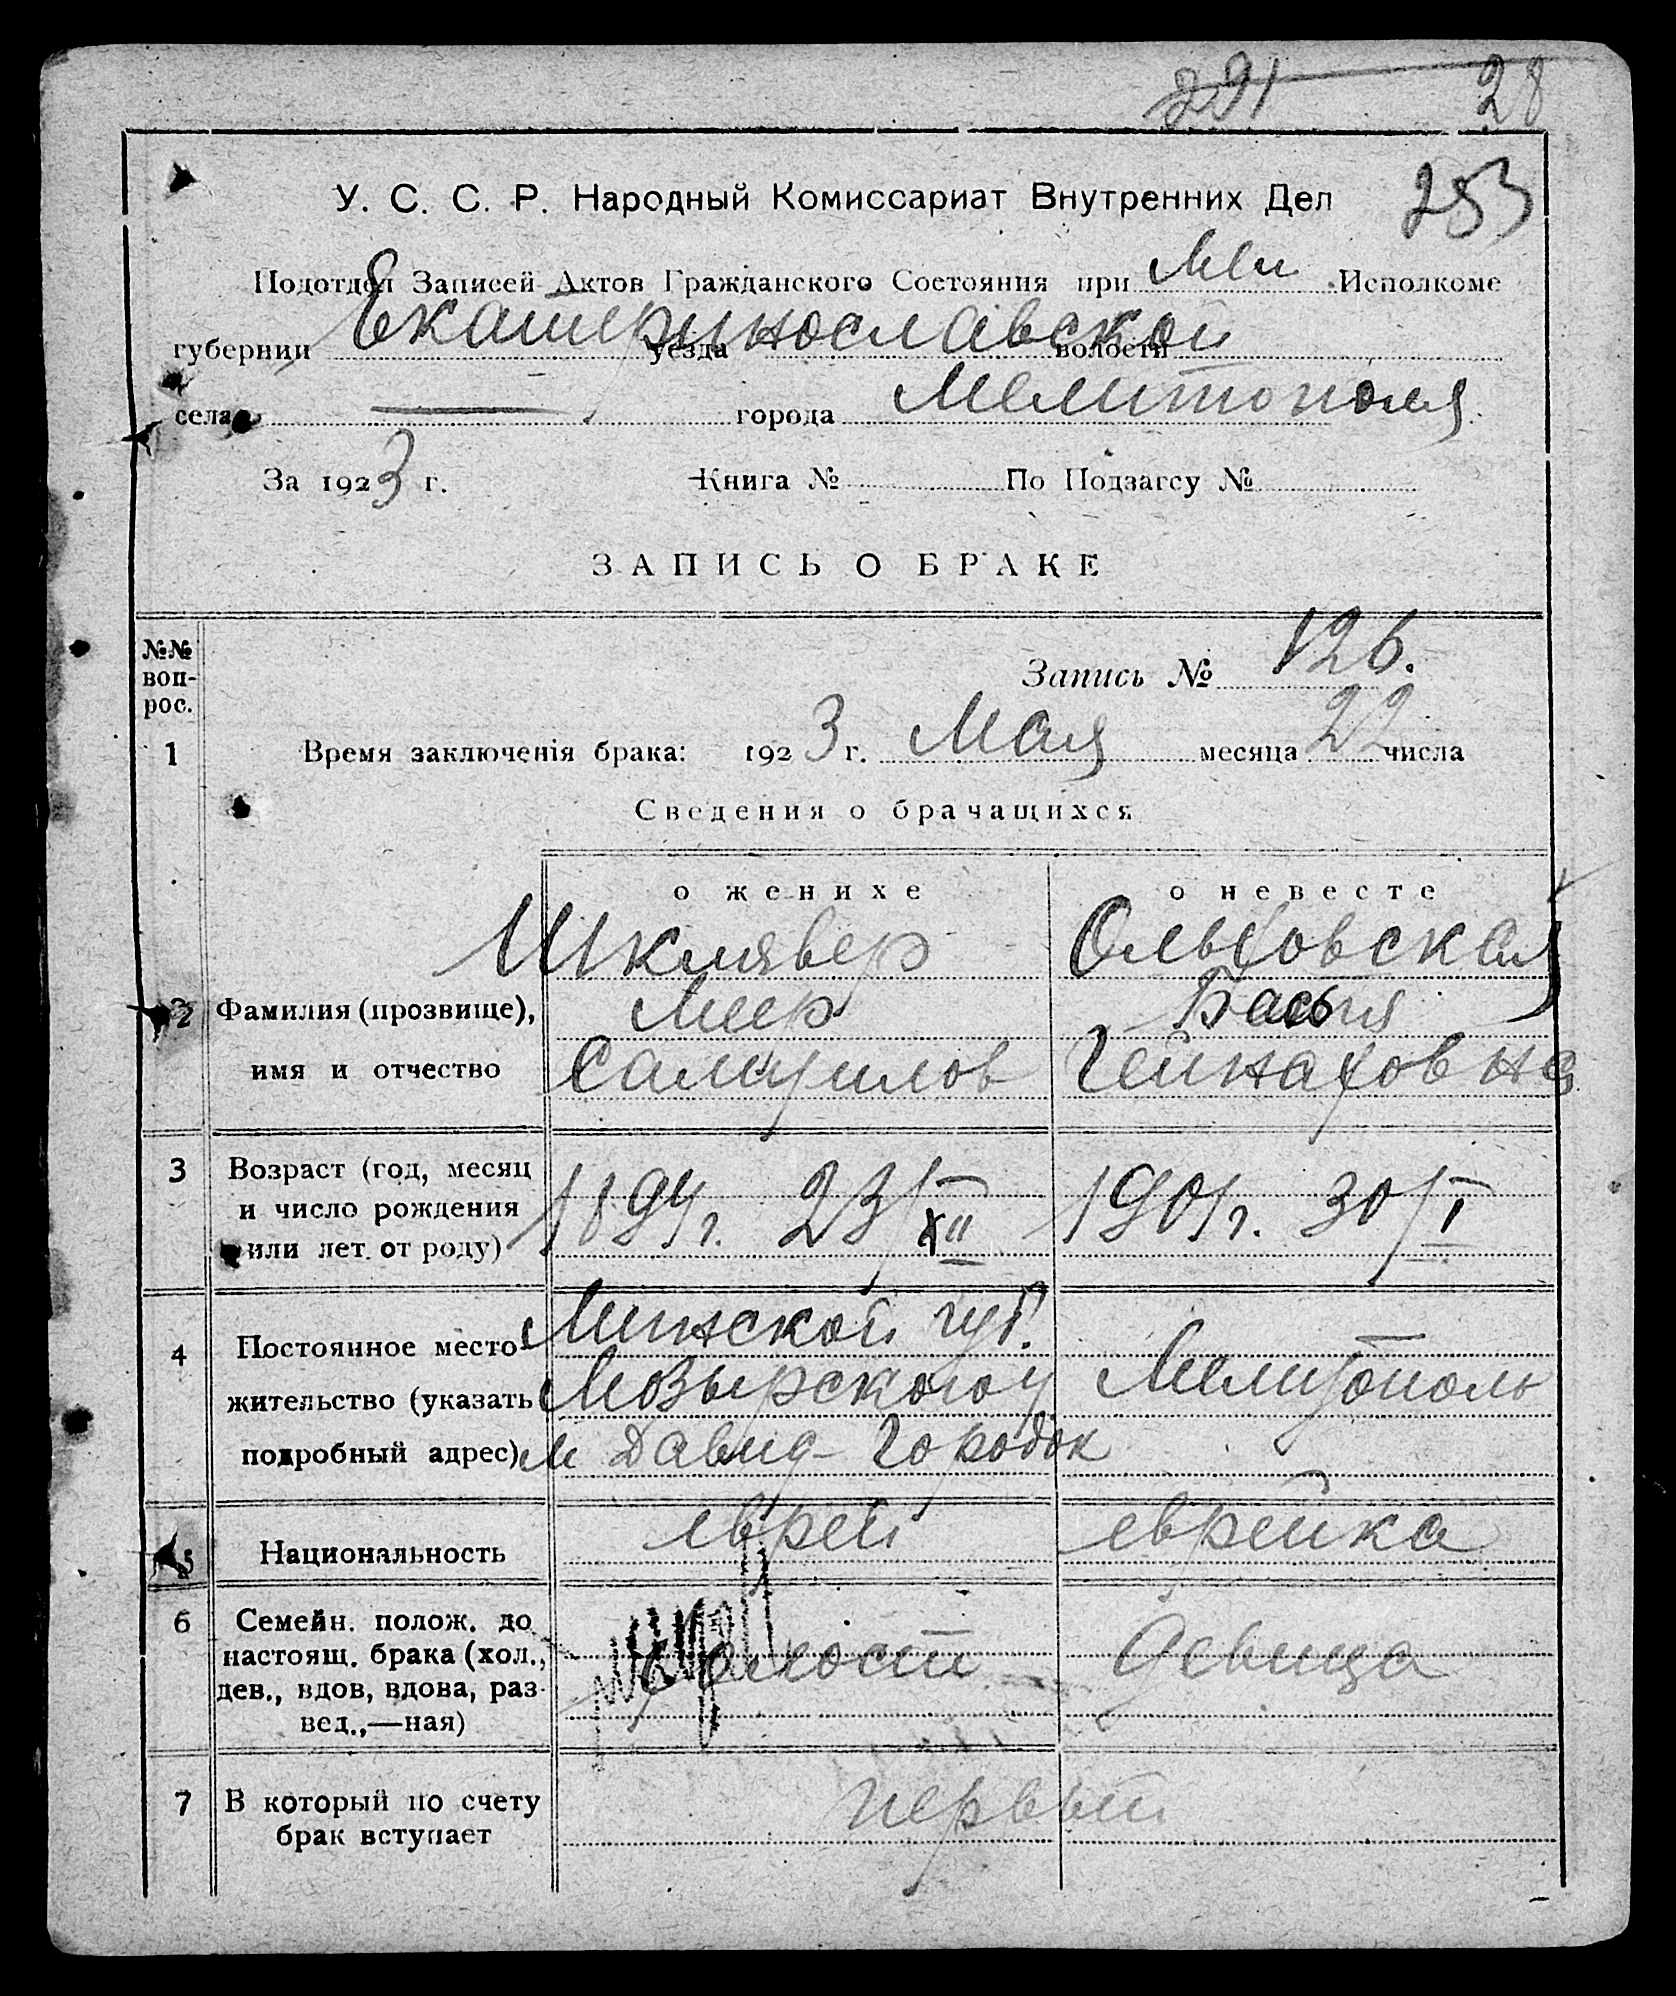 291 28
253
У. С. С. Р. Народный Комиссариат Внутренних Дел
Подотдел Записей Актов Гражданского Состояния при Мел Исполкоме
губернии Екатеринославской уезда волости
села города Мелитополя
За 1923 г. Книга № По Подзагсу №
ЗАПИСЬ О БРАКЕ
№№ воп-рос.
Запись № 126.
1 Время заключенія брака: 1923 г. Мая месяца 22 числа
Сведения о брачащихся
о женихе о невесте
Шклявер Ольховская
2 Фамилия (прозвище), Меер Басья
имя и отчество Самуилов Гейнаховна
3 Возраст (год, месяц
и число рождения 1894 г. 23/XII 1901 г. 30/I
или лет от роду)
Минской губ.
4 Постоянное место-
жительство (указать Мозырского у Мелитополь
подробный адрес) м Давид-Городок
5 Национальность еврей еврейка
6 Семейн. полож. до
настоящ. брака (хол., холост девица
дев., вдов, вдова, раз-
вед.,—ная)
7 В который по счету первый
брак вступает